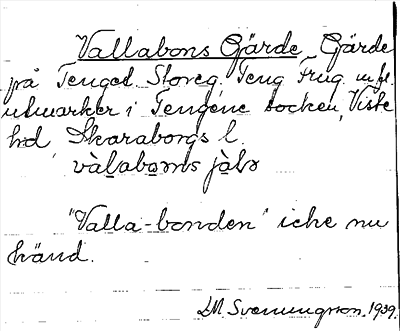 Vallabons Gärde Gärde
på Tenged Storeg. Teng Frug. m.fl.
utmarker i Tengene socken, Viste
hd Skaraborgs l.
vàlabωns jàlə
"Valla-bonden" icke nu
känd.
LM. Svenungsson, 1939.